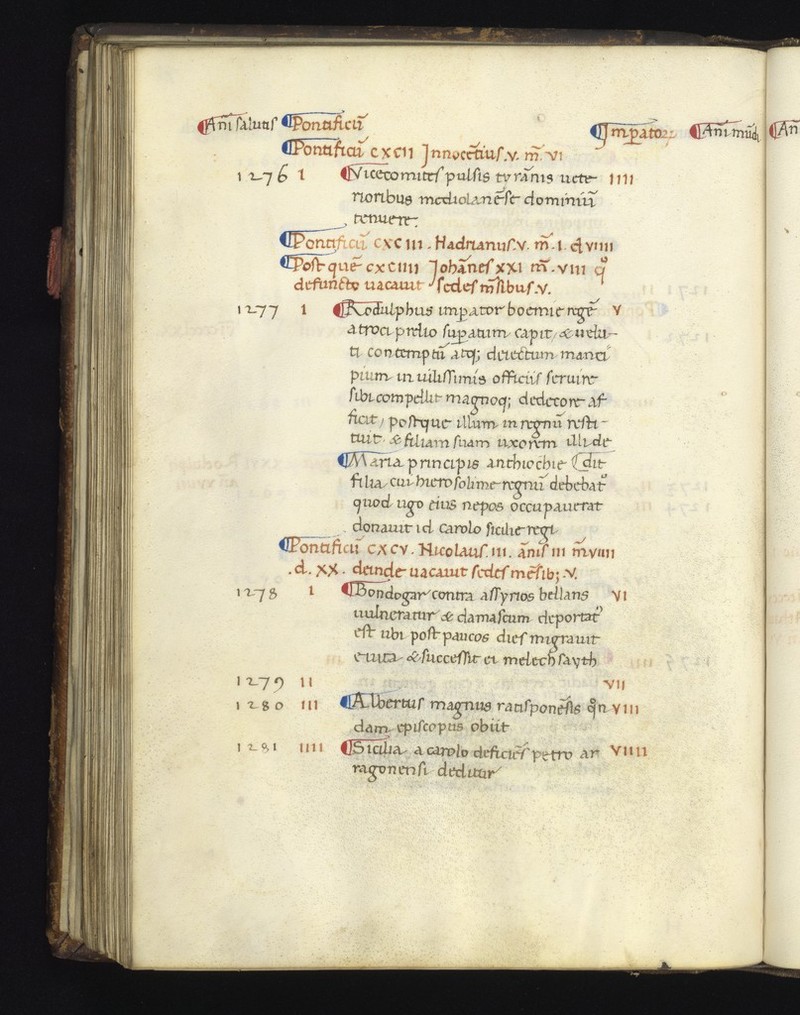 Anī salutis Pontificū Imp̱atoꝝ Anī mūdi An
Pontificū CXCII Innocētius .V. m̄. VI
1276 I Vicecomites pulsis tyrānis uete IIII
rioribus mediolanēse dominiū
tenuere.
Pontificū CXCIII. Hadrianus .V. m̄. I. d VIIII
Post quē CXCIIII Johānes XXI m̄. VIII q°
defuncto uacauit sedes mēsibus .V.
1277 I Rodulphus imp̱ator boemie regē V
atroci prelio sup̱atum capit, & uelu-
ti contemptū atq; deiectum manci
pium in uilissimis officiis seruire
sibi compellit magnoq; dedecore af
ficit, postque illum in regnū resti-
tuit & filiam suam uxorem illi de
Maria principis anthiochie dit
filia cui hierosolime regnū debebat᷒
quod ugo eius nepos occupauerat
donauit id carolo sicilie regi
Pontificū CXCV. Nicolaus .III. ānis III m̄ VIIII
.d. XX. deinde uacauit sedes mēsib; .V.
1278 I Bondogar contra assyrios bellans VI
uulneratur & damascum deportat᷒
est ubi post paucos dies migrauit
e uita & successit ei melech sayth
1279 II VII
1280 III Albertus magnus ratisponēsis qn̄ VIII
dam episcopus obiit
1281 IIII Sicilia a carolo deficiēs petro ar VIIII
ragonensi deditur